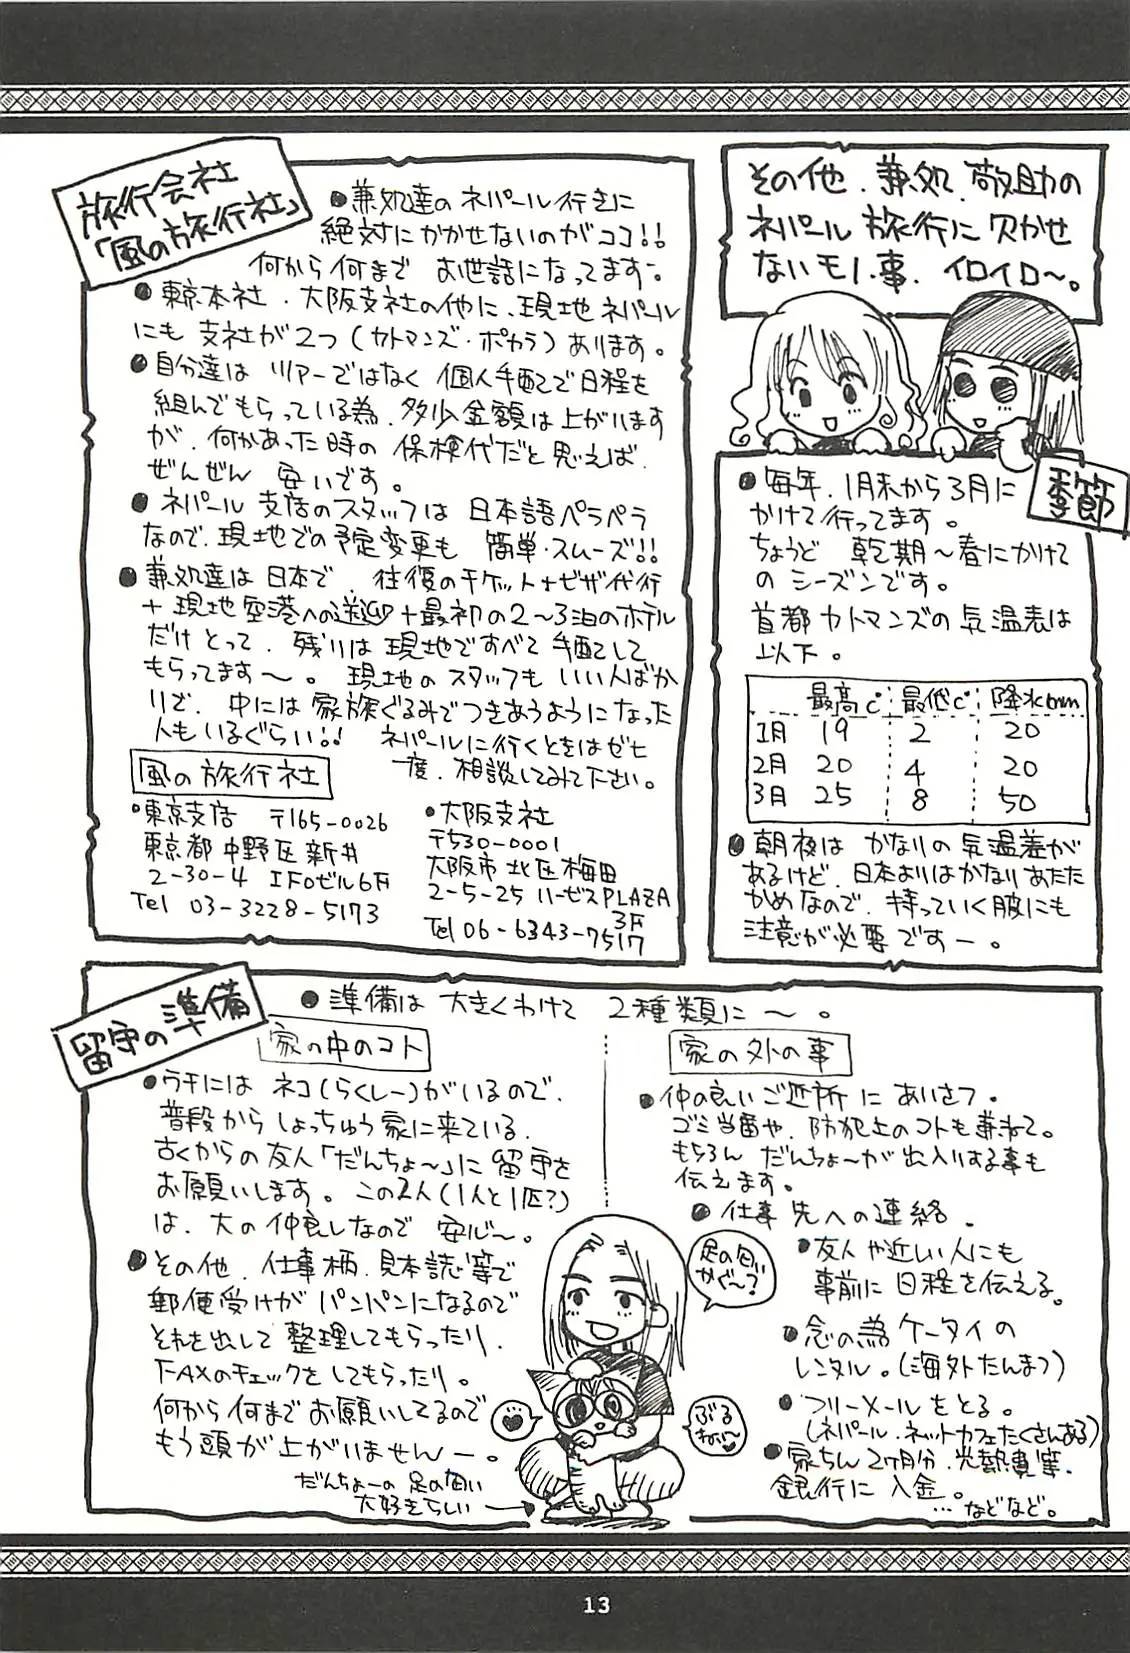 その他、兼処、敬助の
ネパール 旅行に 欠かせ
ないモノ、事、イロイロ〜。
季節
●毎年、1月末から3月に
かけて行ってます。
ちょうど 乾期〜春にかけて
の シーズンです。
首都カトマンズの気温表は
以下。
最高℃ 最低℃ 降水mm
1月 19 2 20
2月 20 4 20
3月 25 8 50
●朝夜は かなりの気温差が
あるけど、日本よりはかなりあたた
かめなので、持っていく服にも
注意が必要ですー。
旅行会社
「風の旅行社」
●兼処達のネパール行きに
絶対にかかせないのがココ!!
何から何まで お世話になってますー。
●東京本社・大阪支社の他に、現地ネパール
にも支社が2つ(カトマンズ・ポカラ)あります。
●自分達は ツアーではなく 個人手配で日程を
組んでもらっている為、多少金額は上がります
が、何かあった時の 保検代だと思えば、
ぜんぜん 安いです。
●ネパール 支店のスタッフは 日本語ペラペラ
なので、現地での予定変更も 簡単・スムーズ!!
●兼処達は日本で、往復のチケット+ビザ代行
+現地空港への送迎+最初の2〜3泊のホテル
だけとって、残りは現地ですべて手配して
もらってます〜。現地のスタッフも いい人ばか
りで、中には家族ぐるみでつきあうようになった
人もいるぐらい!! ネパールに行くときはゼヒ
一度、相談してみて下さい。
風の旅行社
・東京支店 〒165-0026
東京都中野区新井
2-30-4 IFOビル6F
Tel 03-3228-5173
・大阪支社
〒530-0001
大阪市北区梅田
2-5-25 ハービスPLAZA
3F
Tel 06-6343-7517
留守の準備
●準備は 大きくわけて 2種類に〜。
家の中のコト
●ウチには ネコ(らくしー)がいるので、
普段から しょっちゅう 家に来ている、
古くからの友人「だんちょ〜」に留守を
お願いします。この2人(1人と1匹?)
は、大の仲良しなので 安心〜。
●その他、仕事柄、見本誌等で
郵便受けが パンパンになるので
それを出して 整理してもらったり、
FAXのチェックをしてもらったり。
何から何までお願いしてるので
もう頭が上がりませんー。
だんちょーの足の匂い
大好きらしい
家の外の事
●仲の良いご近所に あいさつ。
ゴミ当番や、防犯上のコトも兼ねて。
もちろん だんちょ〜が出入りする事も
伝えます。
●仕事先への連絡。
●友人や近しい人にも
事前に日程を伝える。
●念の為ケータイの
レンタル。(海外たんまつ)
●フリーメールをとる。
(ネパール、ネットカフェたくさんある)
●家ちん2ヶ月分、光熱費等、
銀行に入金。
…などなど。
足の匂い
かぐ〜?
13